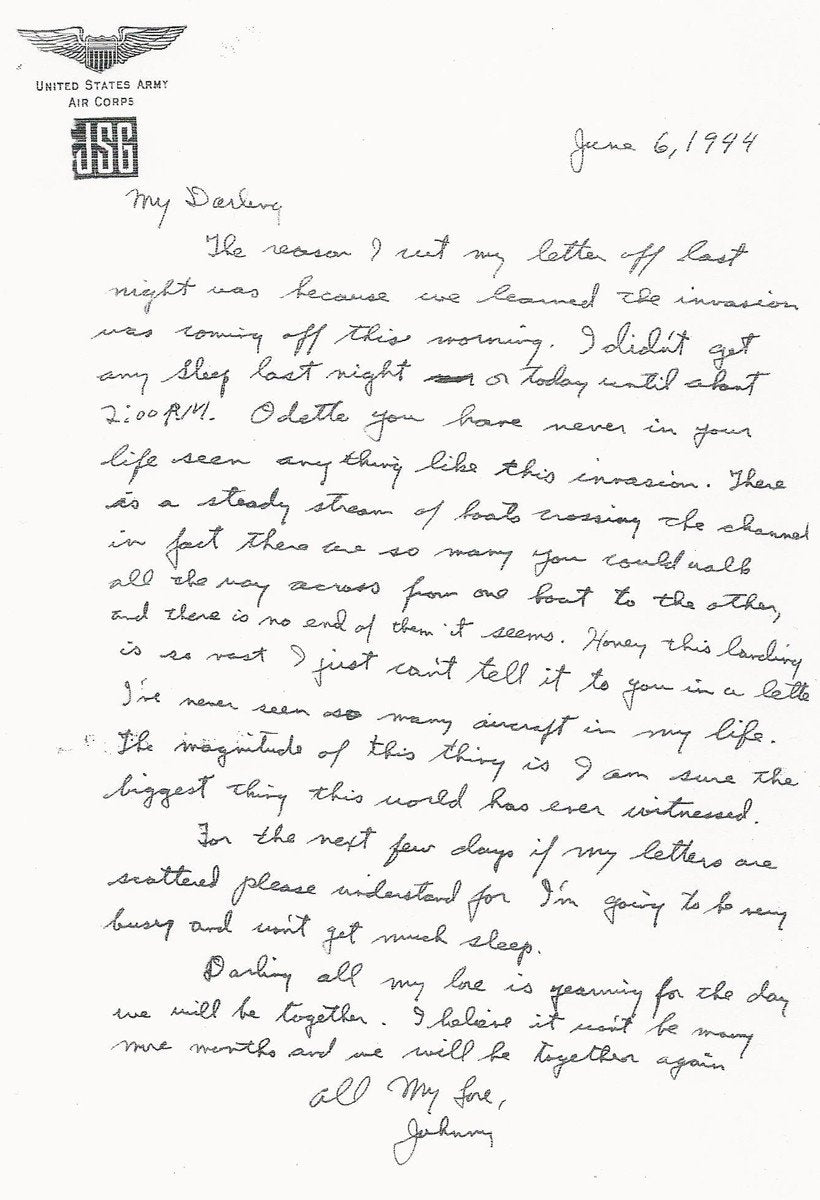 UNITED STATES ARMY
AIR CORPS
JSG
June 6, 1944
My Darling
The reason I cut my letter off last
night was because we learned the invasion
was coming off this morning. I didn't get
any sleep last night or today until about
2:00 P.M. Odette you have never in your
life seen anything like this invasion. There
is a steady stream of boats crossing the channel
in fact there are so many you could walk
all the way across from one boat to the other,
and there is no end of them it seems. Honey this landing
is so vast I just can't tell it to you in a lette
I've never seen so many aircraft in my life.
The magnitude of this thing is I am sure the
biggest thing this world has ever witnessed.
For the next few days if my letters are
scattered please understand for I'm going to be very
busy and won't get much sleep.
Darling all my love is yearning for the day
we will be together. I believe it won't be many
more months and we will be together again
All My Love,
Johnny